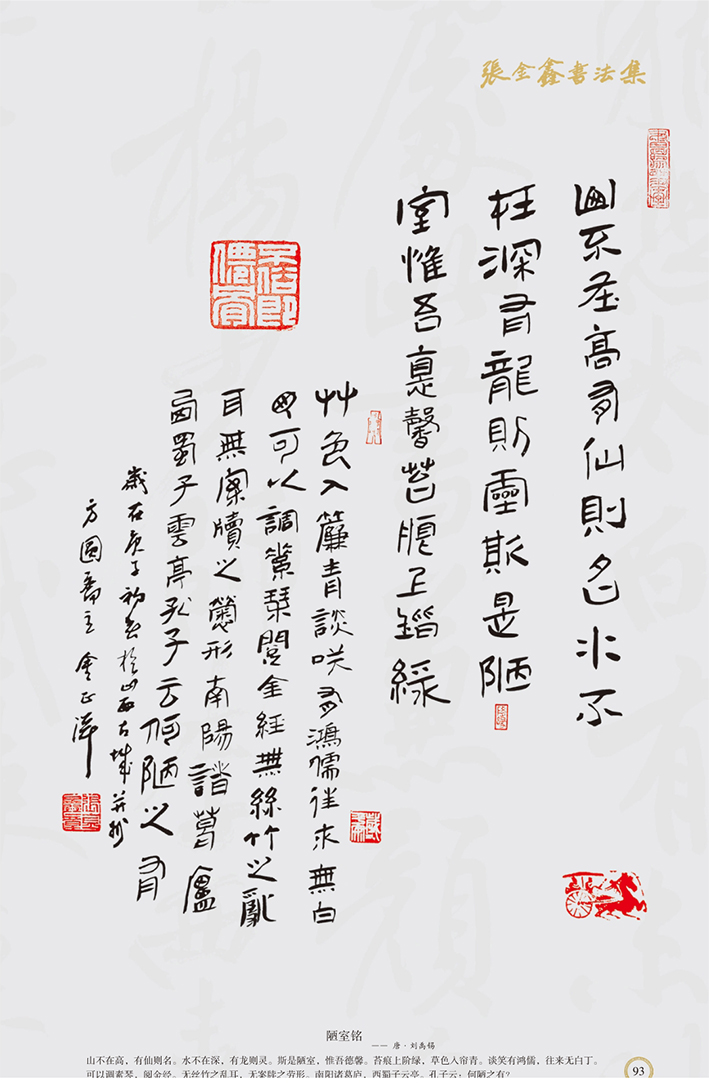 張金鑫書法集
山不在高有仙則名水不
在深有龍則靈斯是陋
室惟吾惪馨苔痕上階綠
艸色入簾青談咲有鴻儒往來無白
丁可以調素琴閱金經無絲竹之亂
耳無案牘之勞形南陽諸葛廬
西蜀子雲亭孔子云何陋之有
歲在庚子初春於山西古城并州
方圓齋主金正
不俗即
僊骨
陋室铭
—— 唐·刘禹锡
山不在高，有仙则名。水不在深，有龙则灵。斯是陋室，惟吾德馨。苔痕上阶绿，草色入帘青。谈笑有鸿儒，往来无白丁。
可以调素琴，阅金经。无丝竹之乱耳，无案牍之劳形。南阳诸葛庐，西蜀子云亭。孔子云：何陋之有？
93